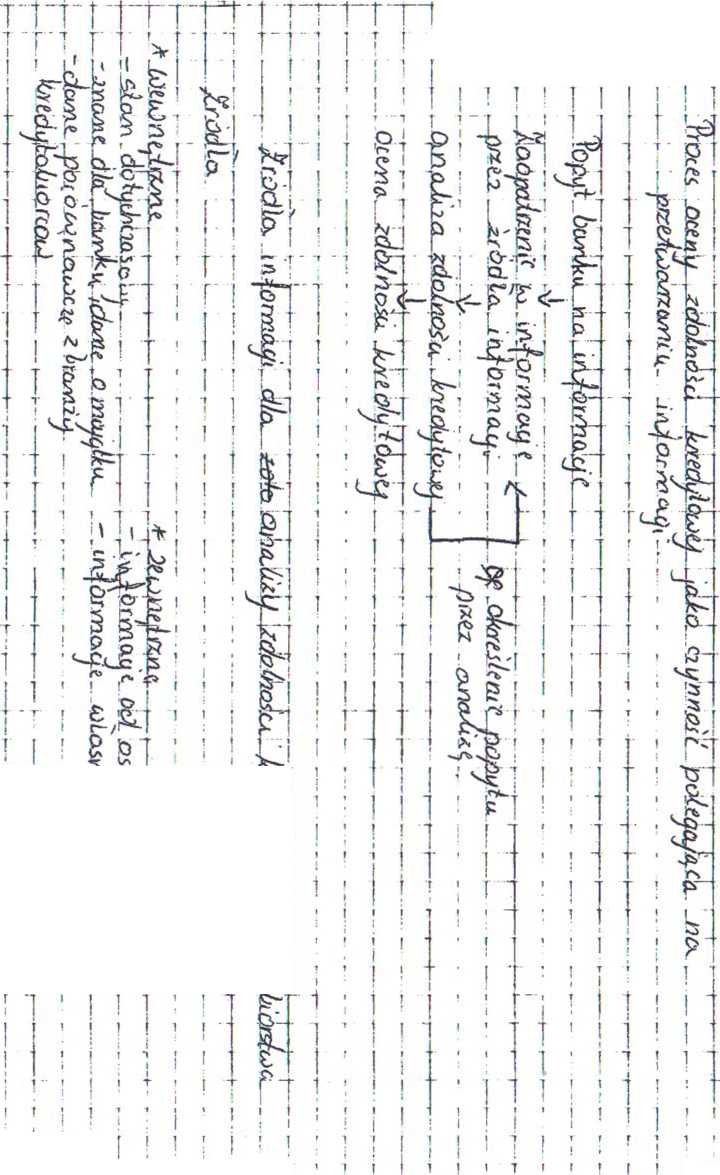 Proces oceny zdolności kredytowej jako czynność polegająca na
przetwarzaniu informacji.
Popyt banku na informacje
↓
Zaopatrzenie w informacje
przez źródła informacji
↓
analiza zdolności kredytowej
↓
ocena zdolności kredytowej
określenie popytu
przez analizę.
Źródła informacji dla analizy zdolności k
biorstwa
Źródła
* wewnętrzne
- stan dotychczasowy
- znane dla banku, dane o majątku
- dane porównawcze z branży
kredytobiorców
* zewnętrzne
- informacje od os
- informacje własn